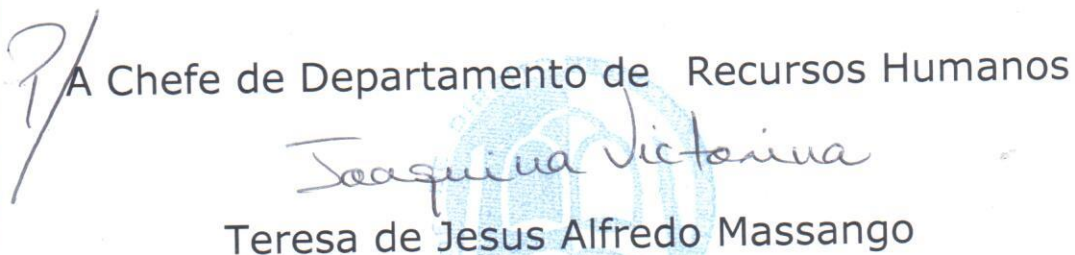 P/ A Chefe de Departamento de Recursos Humanos
Joaquina Victorina
Teresa de Jesus Alfredo Massango